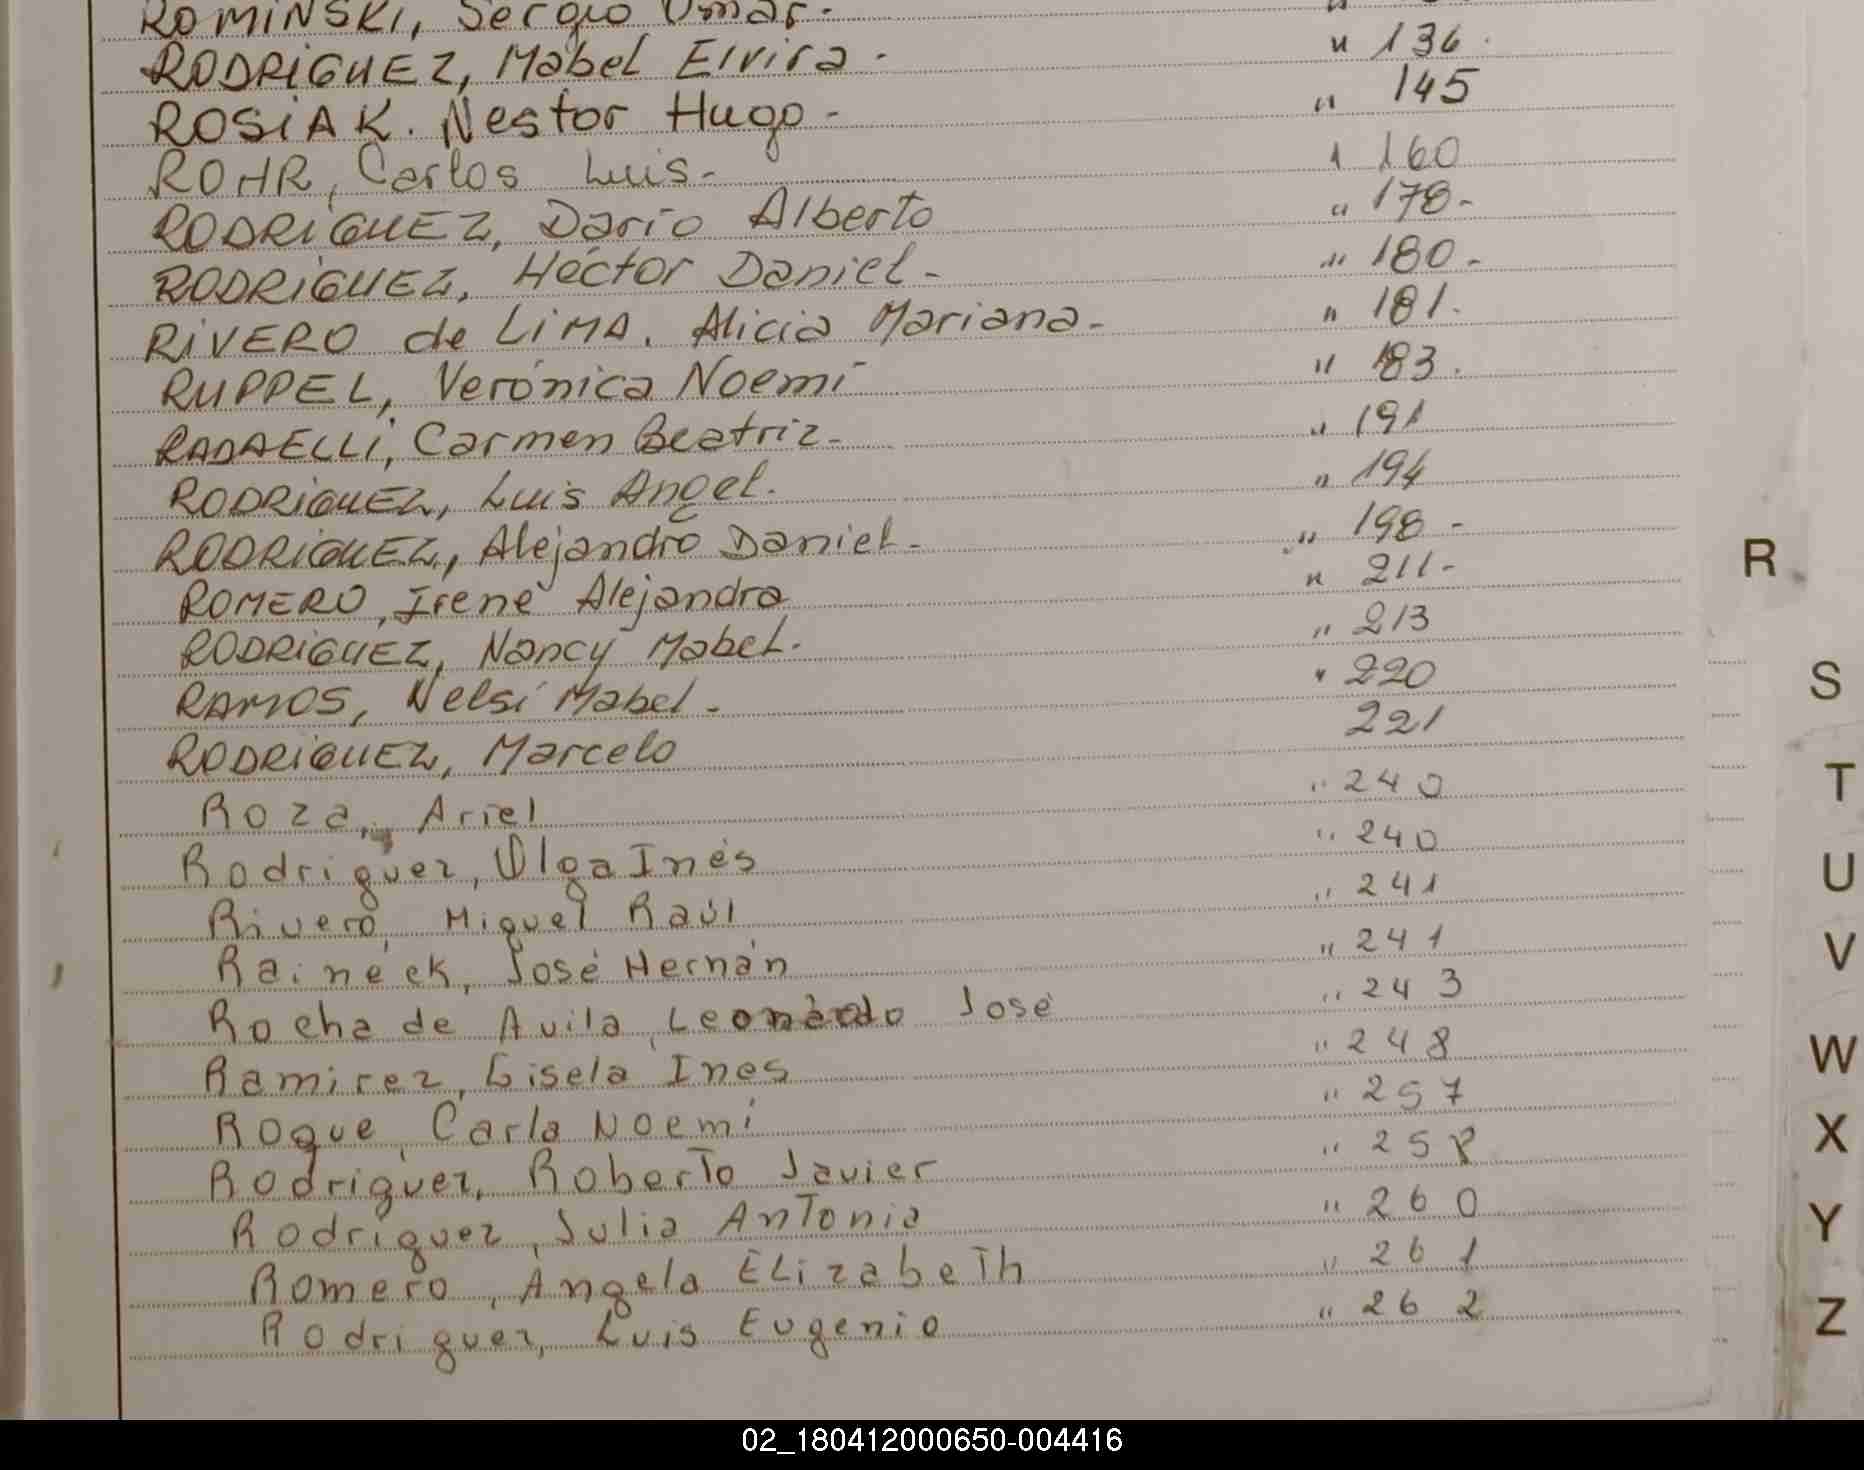 ROMINSKI, Sergio Omar.
RODRIGUEZ, Mabel Elvira. " 136.
ROSIAK. Nestor Hugo - " 145
ROHR, Carlos Luis. " 160
RODRIGUEZ, Darío Alberto " 178-
RODRIGUEZ, Héctor Daniel - " 180-
RIVERO de LIMA. Alicia Mariana- " 181.
RUPPEL, Verónica Noemí " 183.
RADAELLI, Carmen Beatriz- " 191
RODRIGUEZ, Luis Angel. " 194
RODRIGUEZ, Alejandro Daniel- " 198-
ROMERO, Irene Alejandra " 211-
RODRIGUEZ, Nancy Mabel. " 213
RAMOS, Nelsi Mabel- " 220
RODRIGUEZ, Marcelo 221
Roza, Ariel " 240
Rodriguez, Olga Inés " 240
Rivero, Miguel Raúl " 241
Raineck, José Hernán " 241
Rocha de Avila, Leonardo José " 243
Ramirez, Gisela Ines " 248
Roque, Carla Noemí " 257
Rodriguez, Roberto Javier " 258
Rodríguez, Julia Antonia " 260
Romero, Angela Elizabeth " 261
Rodriguez, Luis Eugenio " 262
R
S
T
U
V
W
X
Y
Z
02_180412000650-004416